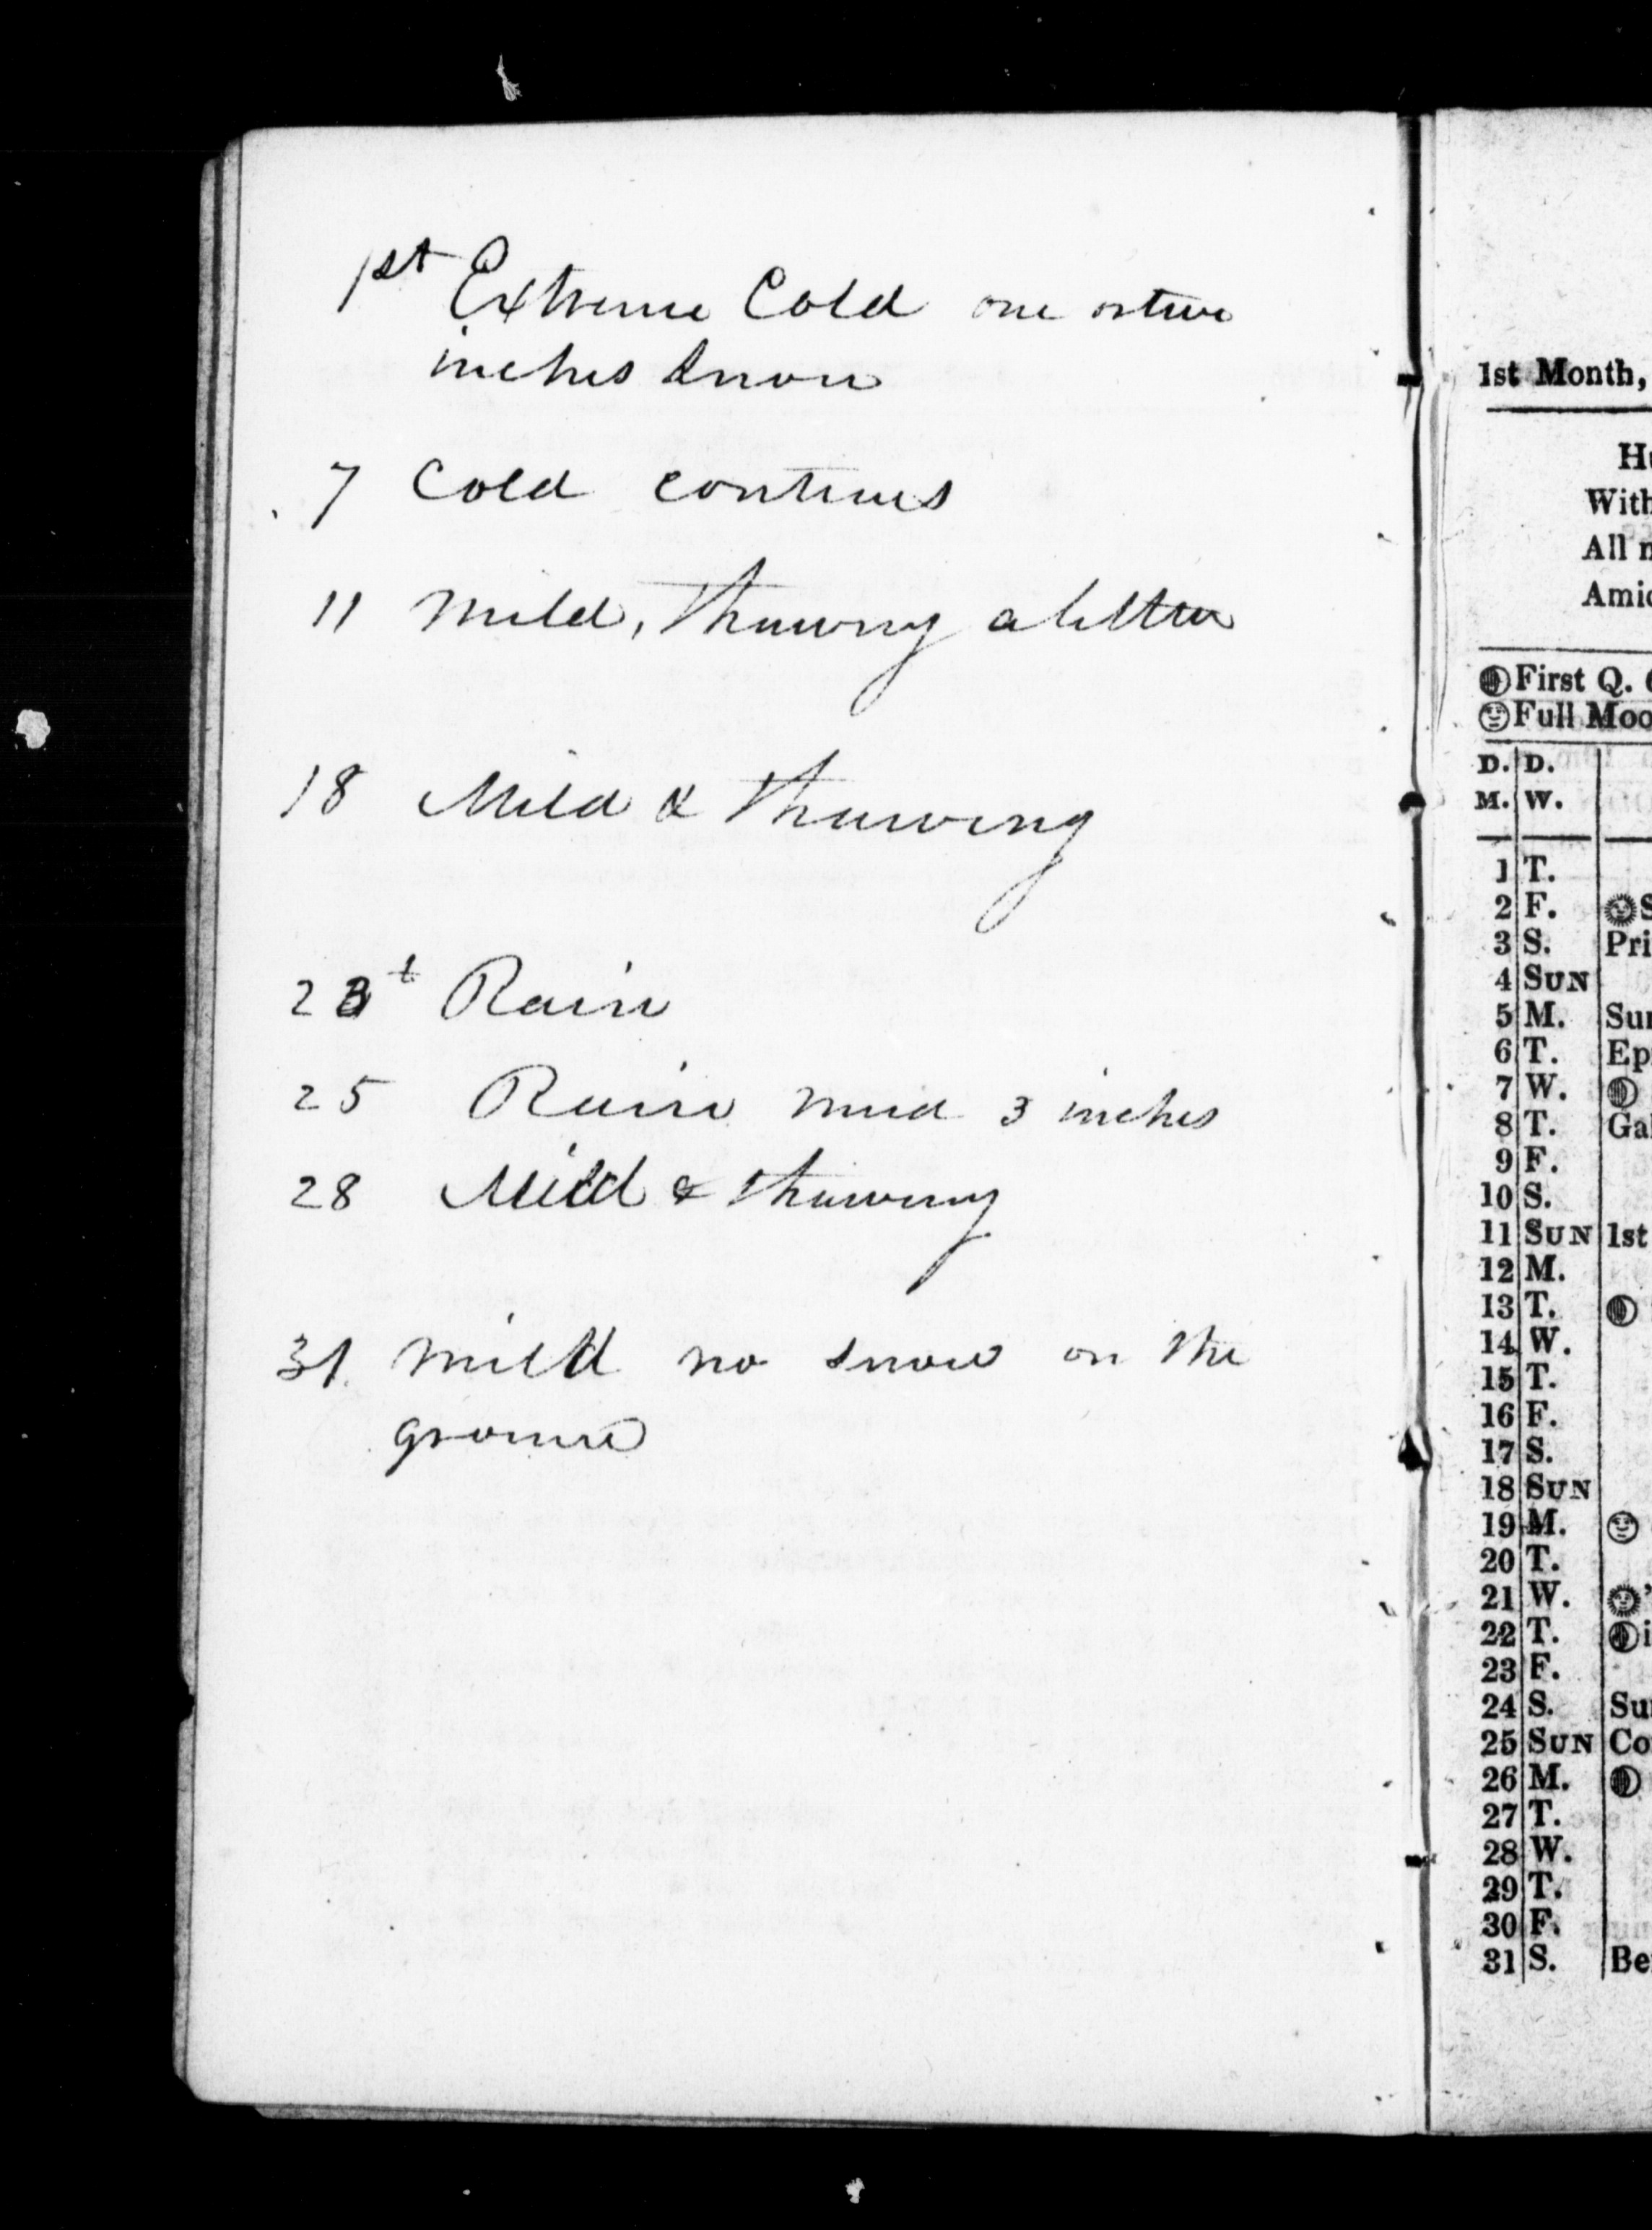 1st Extreme Cold one or two
inches Snow
7 Cold continues
11 Mild, Thawing a little
18 Mild & Thawing
23t Rain
25 Rain mud 3 inches
28 Mild & thawing
31 Mild no snow on the
ground
1st Month,
With
All
First Q.
Full Moo
D. D.
M. W.
1 T.
2 F. S
3 S. Pri
4 SUN
5 M. Sun
6 T. Ep
7 W.
8 T. Gal
9 F.
10 S.
11 SUN 1st
12 M.
13 T.
14 W.
15 T.
16 F.
17 S.
18 SUN
19 M.
20 T.
21 W.
22 T. i
23 F.
24 S. Su
25 SUN Co
26 M.
27 T.
28 W.
29 T.
30 F.
31 S. Be